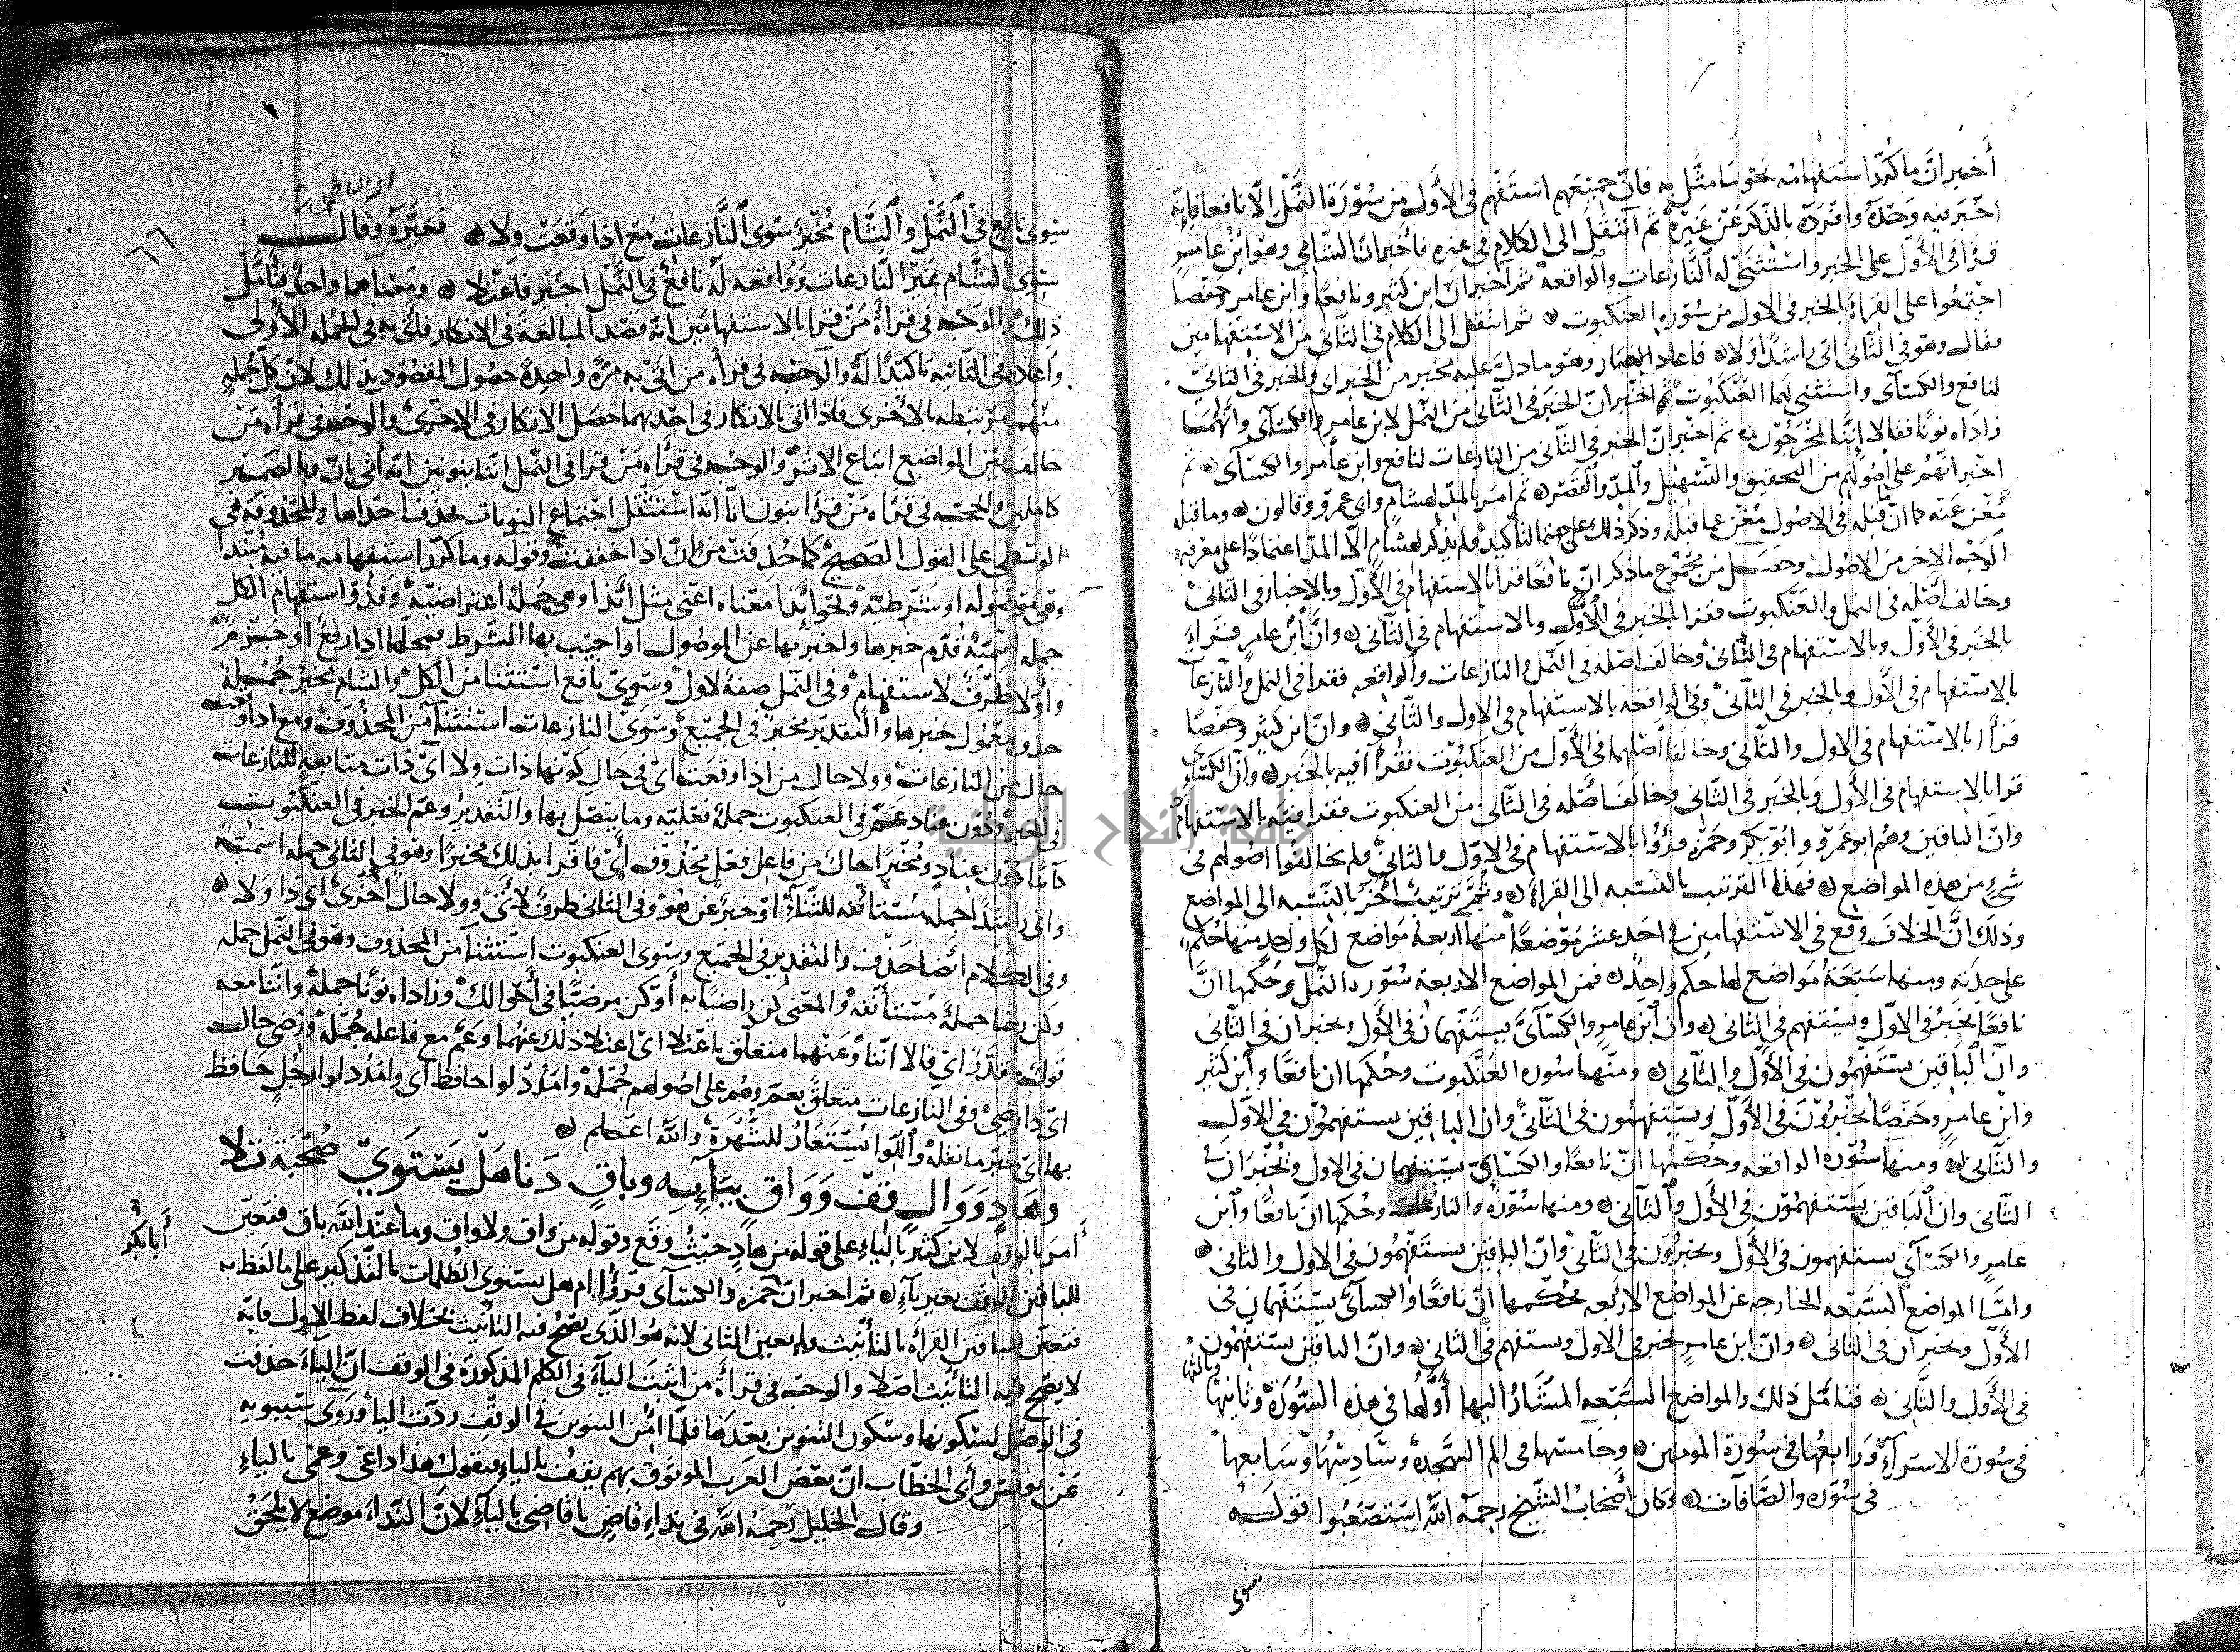 أخبر انّ ما كُرّر استفهامه نحو ما مثّل به فانّ جميعهم استفهم في الأول من سورة النمل الّا نافعا فانّه
اخبر فيه وحده وافرده بالذكر عن غيره ثم انتقل الى الكلام في غيره فاخبر ان الشامي وهو ابن عامر
قرأ في الأوّل على الخبر واستثنى له النازعات والواقعه ثم اخبر انّ ابن كثير ونافعًا وابن عامر وحفصًا
اجتمعوا على القراءة بالخبر في الاول من سوره العنكبوت ثم انتقل الى الكلام في الثاني من الاستفهامين
فقال وهو في الثاني اتى راشدًا ولا فاعاد الضمار وهو ما دلّ عليه مخبر من الخبر اى والخبر في الثاني
لنافع والكسآى واستثنى لهما العنكبوت ثم اخبر انّ الخبر في الثاني من النمل لابن عامر والكسآى وانهما
زاداه نونًا فقالا إنّنا لمخرجون ثم اخبر انّ الخبر في الثاني من النازعات لنافع وابن عامر والكسآى ثم
اخبر انّهم على اصولهم من التحقيق والتسهيل والمدّ والقصر ثم امر بالمدّ لهشام وابى عمرو وقالون وما قبله
مُغن عنه كما انّ قبله في الاصول مُغن عما قبله وذكر ذلك على جهة التأكيد ولم يذكر لهشام الّا المدّ اعتمادًا على معرفة
الوجه الاخر من الاصول وحصل من مجموع ما ذكر انّ نافعًا قرأ بالاستفهام في الأوّل وبالاخبار في الثاني
وخالف اصله في النمل والعنكبوت فقرا بالخبر في الأوّل وبالاستفهام في الثاني وانّ ابن عامر قرأ
بالخبر في الأوّل وبالاستفهام في الثاني وخالف اصله في النمل والنازعات والواقعه فقرا في النمل والنازعات
بالاستفهام في الأوّل وبالخبر في الثاني وفي الواقعه بالاستفهام في الاول والثاني وانّ ابن كثير وحفصًا
قرأا بالاستفهام في الاول والثاني وخالفا أصلهما في الأوّل من العنكبوت فقرأا فيه بالخبر وانّ الكسآى
قرا بالاستفهام في الأول وبالخبر في الثاني وخالف اصله في الثاني من العنكبوت فقرا فيه بالاستفهام
وانّ الباقين وهم ابو عمرو وابو بكر وحمزه قرؤا بالاستفهام في الاوّل والثاني ولم يخالفوا اصولهم في
شيءٍ من هذه المواضع فهذا الترتيب بالنسبه الى القراءة وثمّ ترتيبٌ آخر بالنسبه الى المواضع
وذلك انّ الخلاف وقع في الاستفهامين في احد عشر موضعًا منها اربعة مواضع لكل واحد منها حكم
على حدته ومنها سبعة مواضع لها حكم واحد فمن المواضع الاربعة سورة النمل وحكمها انّ
نافعًا يخبر في الاوّل ويستفهم في الثاني وان ابن عامر والكسآى يستفهمان في الأول ويخبران في الثاني
وانّ الباقين يستفهمون في الأوّل والثاني ومنها سوره العنكبوت وحكمها ان نافعًا وابن كثير
وابن عامر وحفصًا يخبرون في الأول ويستفهمون في الثاني وان الباقين يستفهمون في الاوّل
والثاني ومنها سوره الواقعه وحكمها انّ نافعًا والكسآى يستفهمان في الاول ويخبران في
الثاني وان الباقين يستفهمون في الأول والثاني ومنها سوره والنازعات وحكمها انّ نافعًا وابن
عامر والكسآى يستفهمون في الأول ويخبرون في الثاني وانّ الباقين يستفهمون في الاول والثاني
وامّا المواضع السبعه الخارجه عن المواضع الاربعه فحكمها انّ نافعًا والكسآى يستفهمان في
الأوّل ويخبران في الثاني وانّ ابن عامر يخبر في الاول ويستفهم في الثاني وانّ الباقين يستفهمون
في الأول والثاني فتامّل ذلك والمواضع السبعه المشار اليها أوّلها في هذه السورة وثانيها وثالثها
في سورة الاسرآء ورابعها في سورة المومنين وخامستها في الم السجده وسادستها وسابعها
في سوره والصافات وكان أصحاب الشيخ رحمه الله استصعبوا قوله
سوى
٦٦
سوى نافع في النمل والشام مُخبرٌ سوى النازعات مع اذا وقعت ولا فغيّره وقال
سوى الشام غير النازعات وواقعه له نافع في النمل اخبر فاعتلا ومعناهما واحد فتأمل
ذلك والوجه في قراءة من قرا بالاستفهامين انّه قصد المبالغة في الانكار فاتى به في الجمله الأولى
واعاده في الثانيه تاكيدًا له والوجه في قرأه من اتى به مرّة واحدة حصول المقصود بذلك لانّ كلّ جملة
منهما مرتبطه بالأخرى فاذا اتى بالانكار في احديهما حصل الانكار في الاخرى والوجه في قرأه مَن
خالف بين المواضع اتباع الاثر والوجه في قرأه من قرا في النمل انّنا بنونين انّه أتى بانّ وبالضمير
كاملين والحجه في قرأه من قرأ بنون انّا انّه استثقل اجتماع النونات فحذف احداها والمحذوفة هي
الوسطى على القول الصحيح كما حُذفت من انّ اذا خففت وقوله وما كرّر استفهامه ما فيه مبتدا
وهي موصوله او شرطيّة ونحو ائذا معناه اعنى مثل ائذا وهي جملة اعتراضيّة وفذو استفهام الكل
جمله اسميّة قدّم خبرها واخبر بها عن الموصول او اجيب بها الشرط فمحلّها اذا رفعٌ او جزمٌ
وأوّلا ظرفٌ لاستفهام وفي النمل صفة لاول وسوى نافع استثنا من الكل والشام مخبر جملة
حذف معمول خبرها والتقدير مخبر في الجميع وسوى النازعات استثنآ من المحذوف ومع اذا وقعت
حال من النازعات وولا حال من اذا وقعت اى في حال كونها ذات ولا اى ذات متابعة للنازعات
في الخبر ودون عناد عمّ في العنكبوت جملة فعليّه وما يتصل بها والتقدير وعمّ الخبر في العنكبوت
كائنًا دون عناد ومُخبرًا حال من فاعل فعل محذوف أى قرا بذلك مخبرًا وهو في الثاني جمله اسميّة
واتى راشدًا جمله مستأنفه للثناء او خبرٌ عن هو وفي الثاني ظرف لأتى وولا حال أخرى اى ذا ولا
وفي الكلام ايضا حذف والتقدير في الجميع وسوى العنكبوت استثنآ من المحذوف وهو في النمل جمله
وكن رضا جملة مستأنفه والمعنى كن راضيًا به أو كن مرضيًا في أحوالك وزاداه نونًا جملة وانّنا معه
قول مقدّر اى قالا انّنا وعنهما متعلّق باعتلا اى اعتلا ذلك عنهما وعمّ مع فاعله جملة ورضى حال
اى ذا رضى وفي النازعات متعلق بعمّ وهم على اصولهم جملة وامدد لوا حافظ اى وامدد لوا رجل حافظ
بها اى خير ما نقله واللوا يستعار للشهرة والله اعلم
وهادٍ ووالٍ قف وواق بيائه وباقٍ دنا هل يستوي صحبة تلا
أمر بالوقف لابن كثير بالياء على قوله من هادٍ حيث وقع وقوله من واق ولا واق وما عند الله باق فتعين
أبابكر
للباقين الوقف بغير يآء ثم اخبر انّ حمزه والكسآى قرؤا ام هل يستوى الظلمات بالتذكير على ما لفظ به
فتعيّن للباقين القرأه بالتأنيث ولم يعين الثاني لانه هو الذى يصح فيه التأنيث بخلاف لفظ الاول فانّه
لا يصح فيه التأنيث اصلا والوجه في قرأة من اثبت اليآء في الكلم المذكورة في الوقف انّ اليآء حذفت
في الوصل لسكونها وسكون التنوين بعدها فلمّا أمن التنوين في الوقف ردّت اليا وروى سيبويه
عن يونس وأبى الخطّاب انّ بعض العرب الموثوق بهم يقف بالياء فيقول هذا داعى وعمى بالياءِ
وقال الخليل رحمه الله في نداء قاضٍ يا قاضى باليآء لانّ النداء موضع لا يلحق